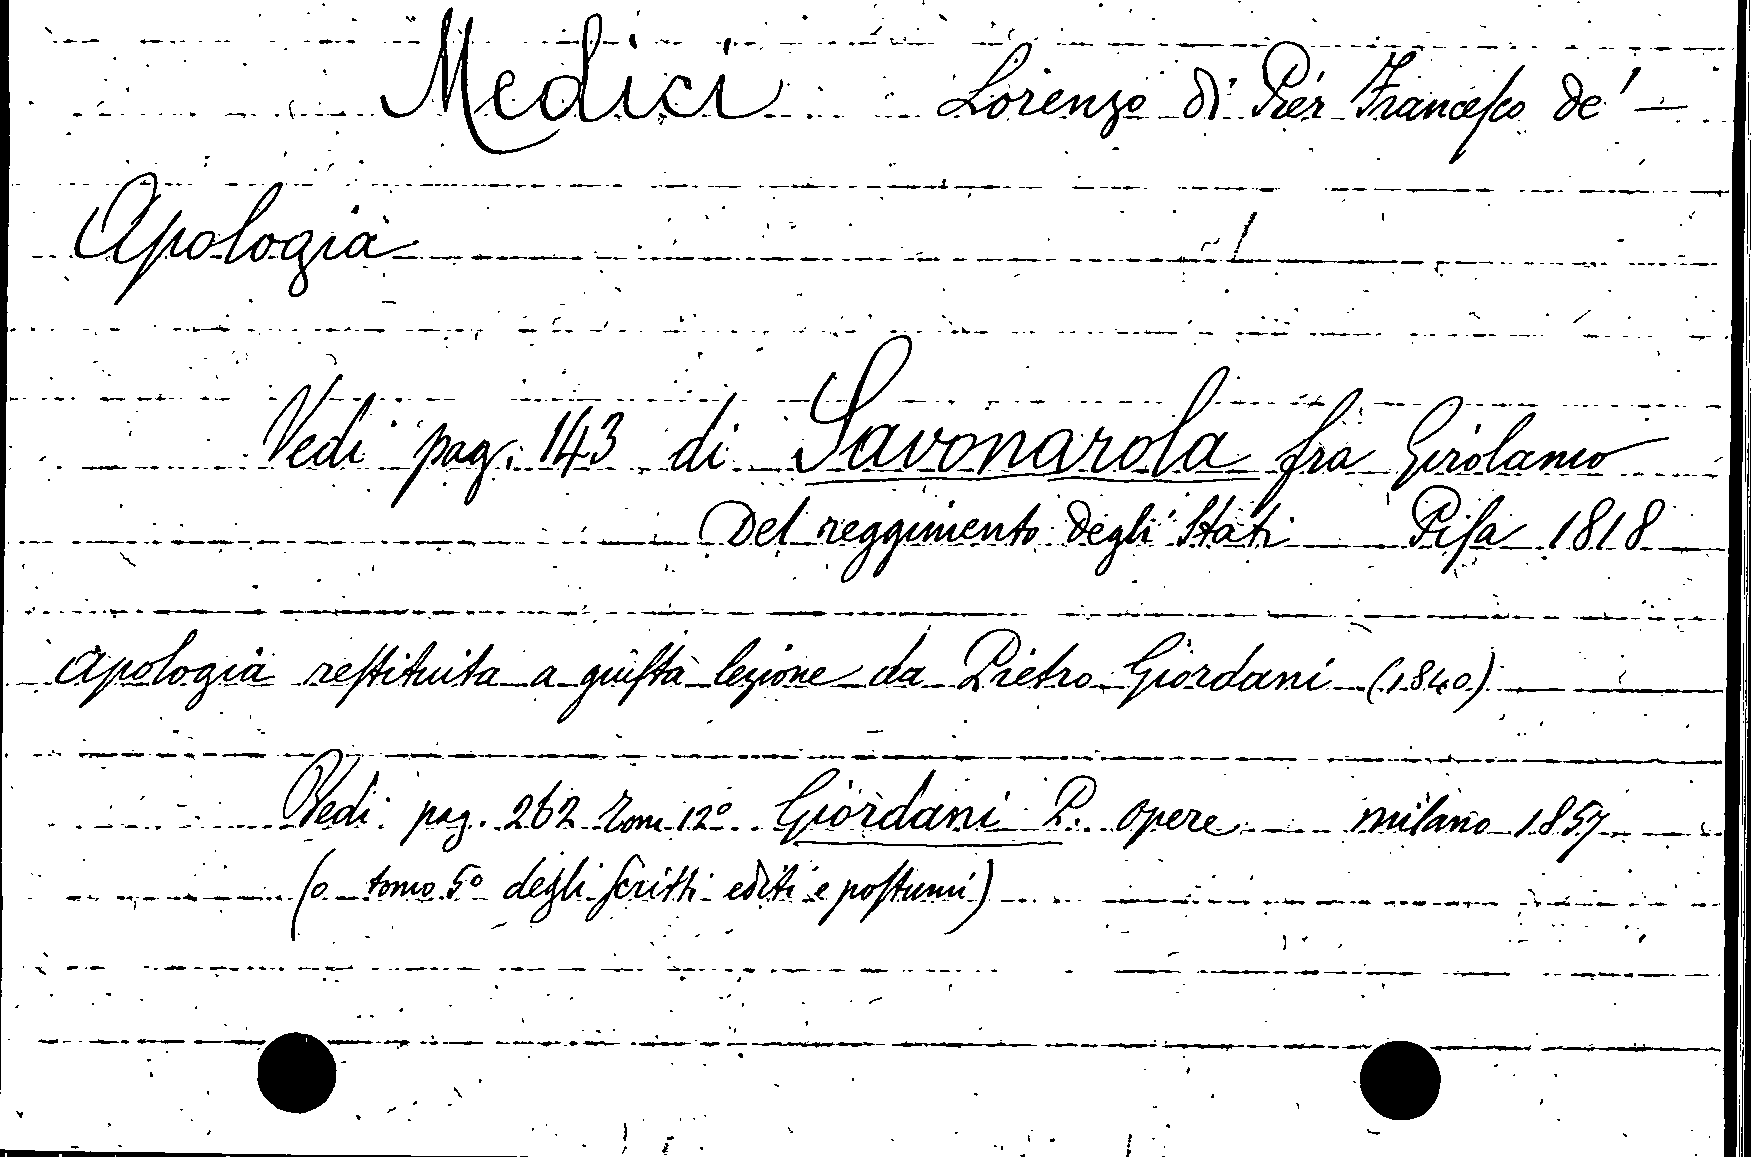 Medici Lorenzo di Pier Francesco de' —
Apologia
Vedi pag. 143 di Savonarola fra Girolamo
Del reggimento degli Stati Pisa 1818
Apologia restituita a giusta lezione da Pietro Giordani (1840)
Vedi pag. 262 Tom. 12º Giordani P. Opere Milano 1857
(o tomo 5º degli scritti editi e postumi)